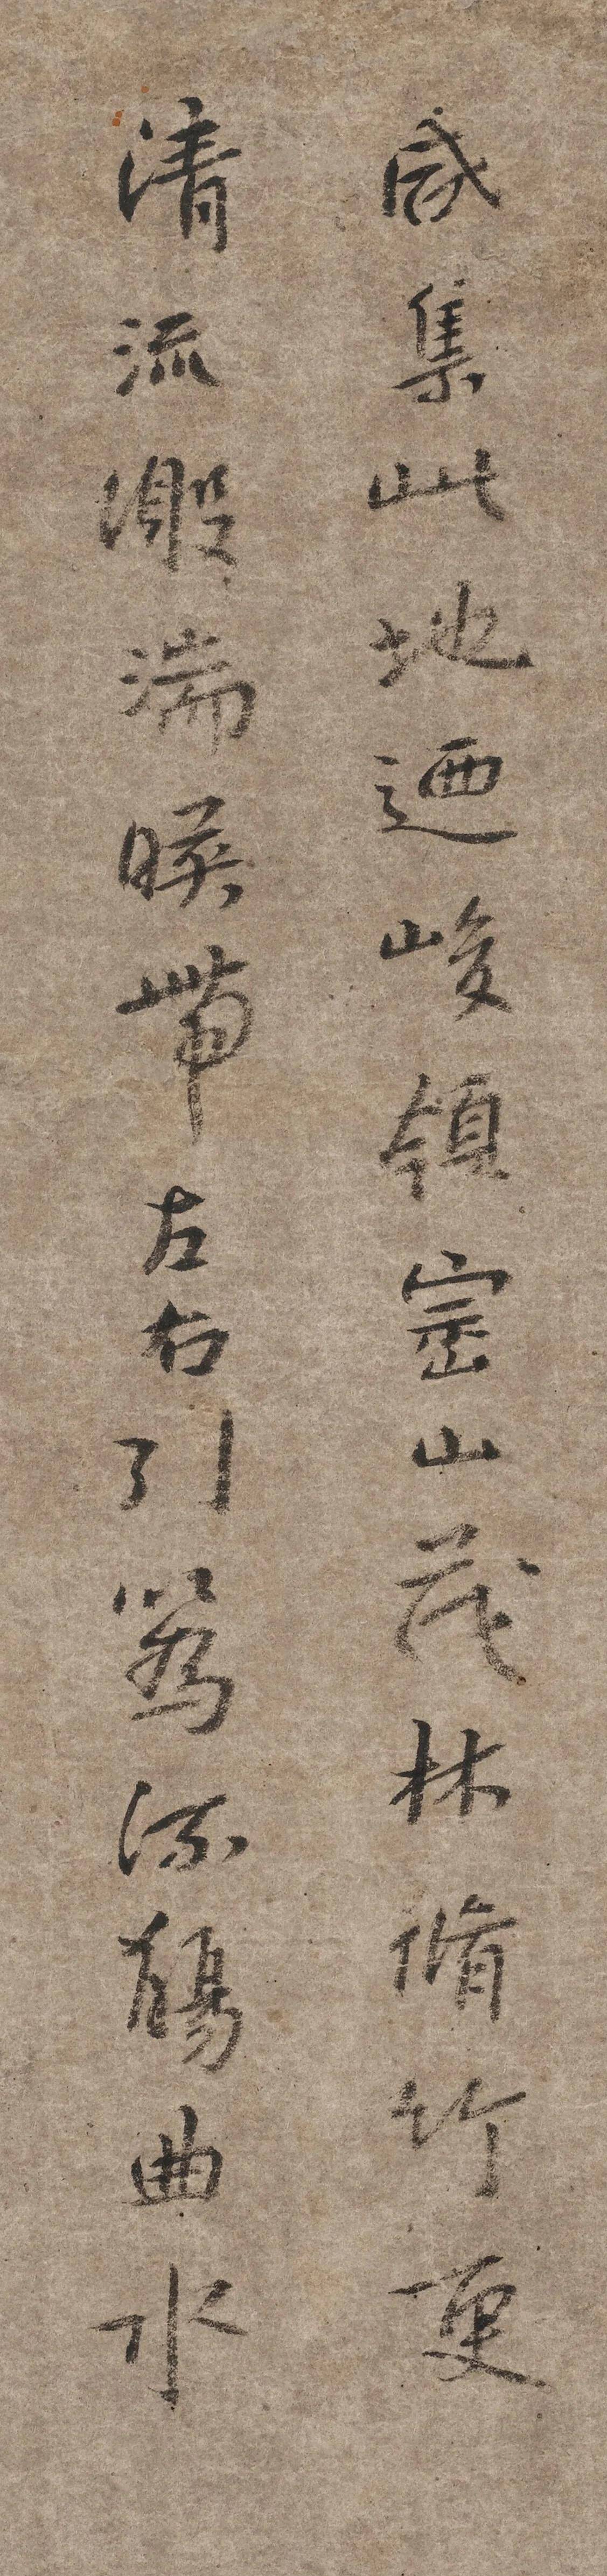 咸集此地迺峻領崈山茂林脩竹更
清流激湍暎帶左右引以為流觴曲水